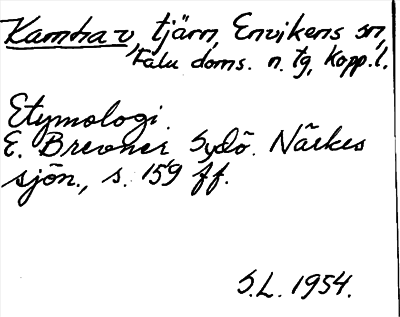 Kamhav, tjärn, Envikens sn,
Falu doms. n. tg, Kopp.l.
Etymologi.
E. Brevner Sydö. Närkes
sjön., s. 159 ff.
S.L. 1954.